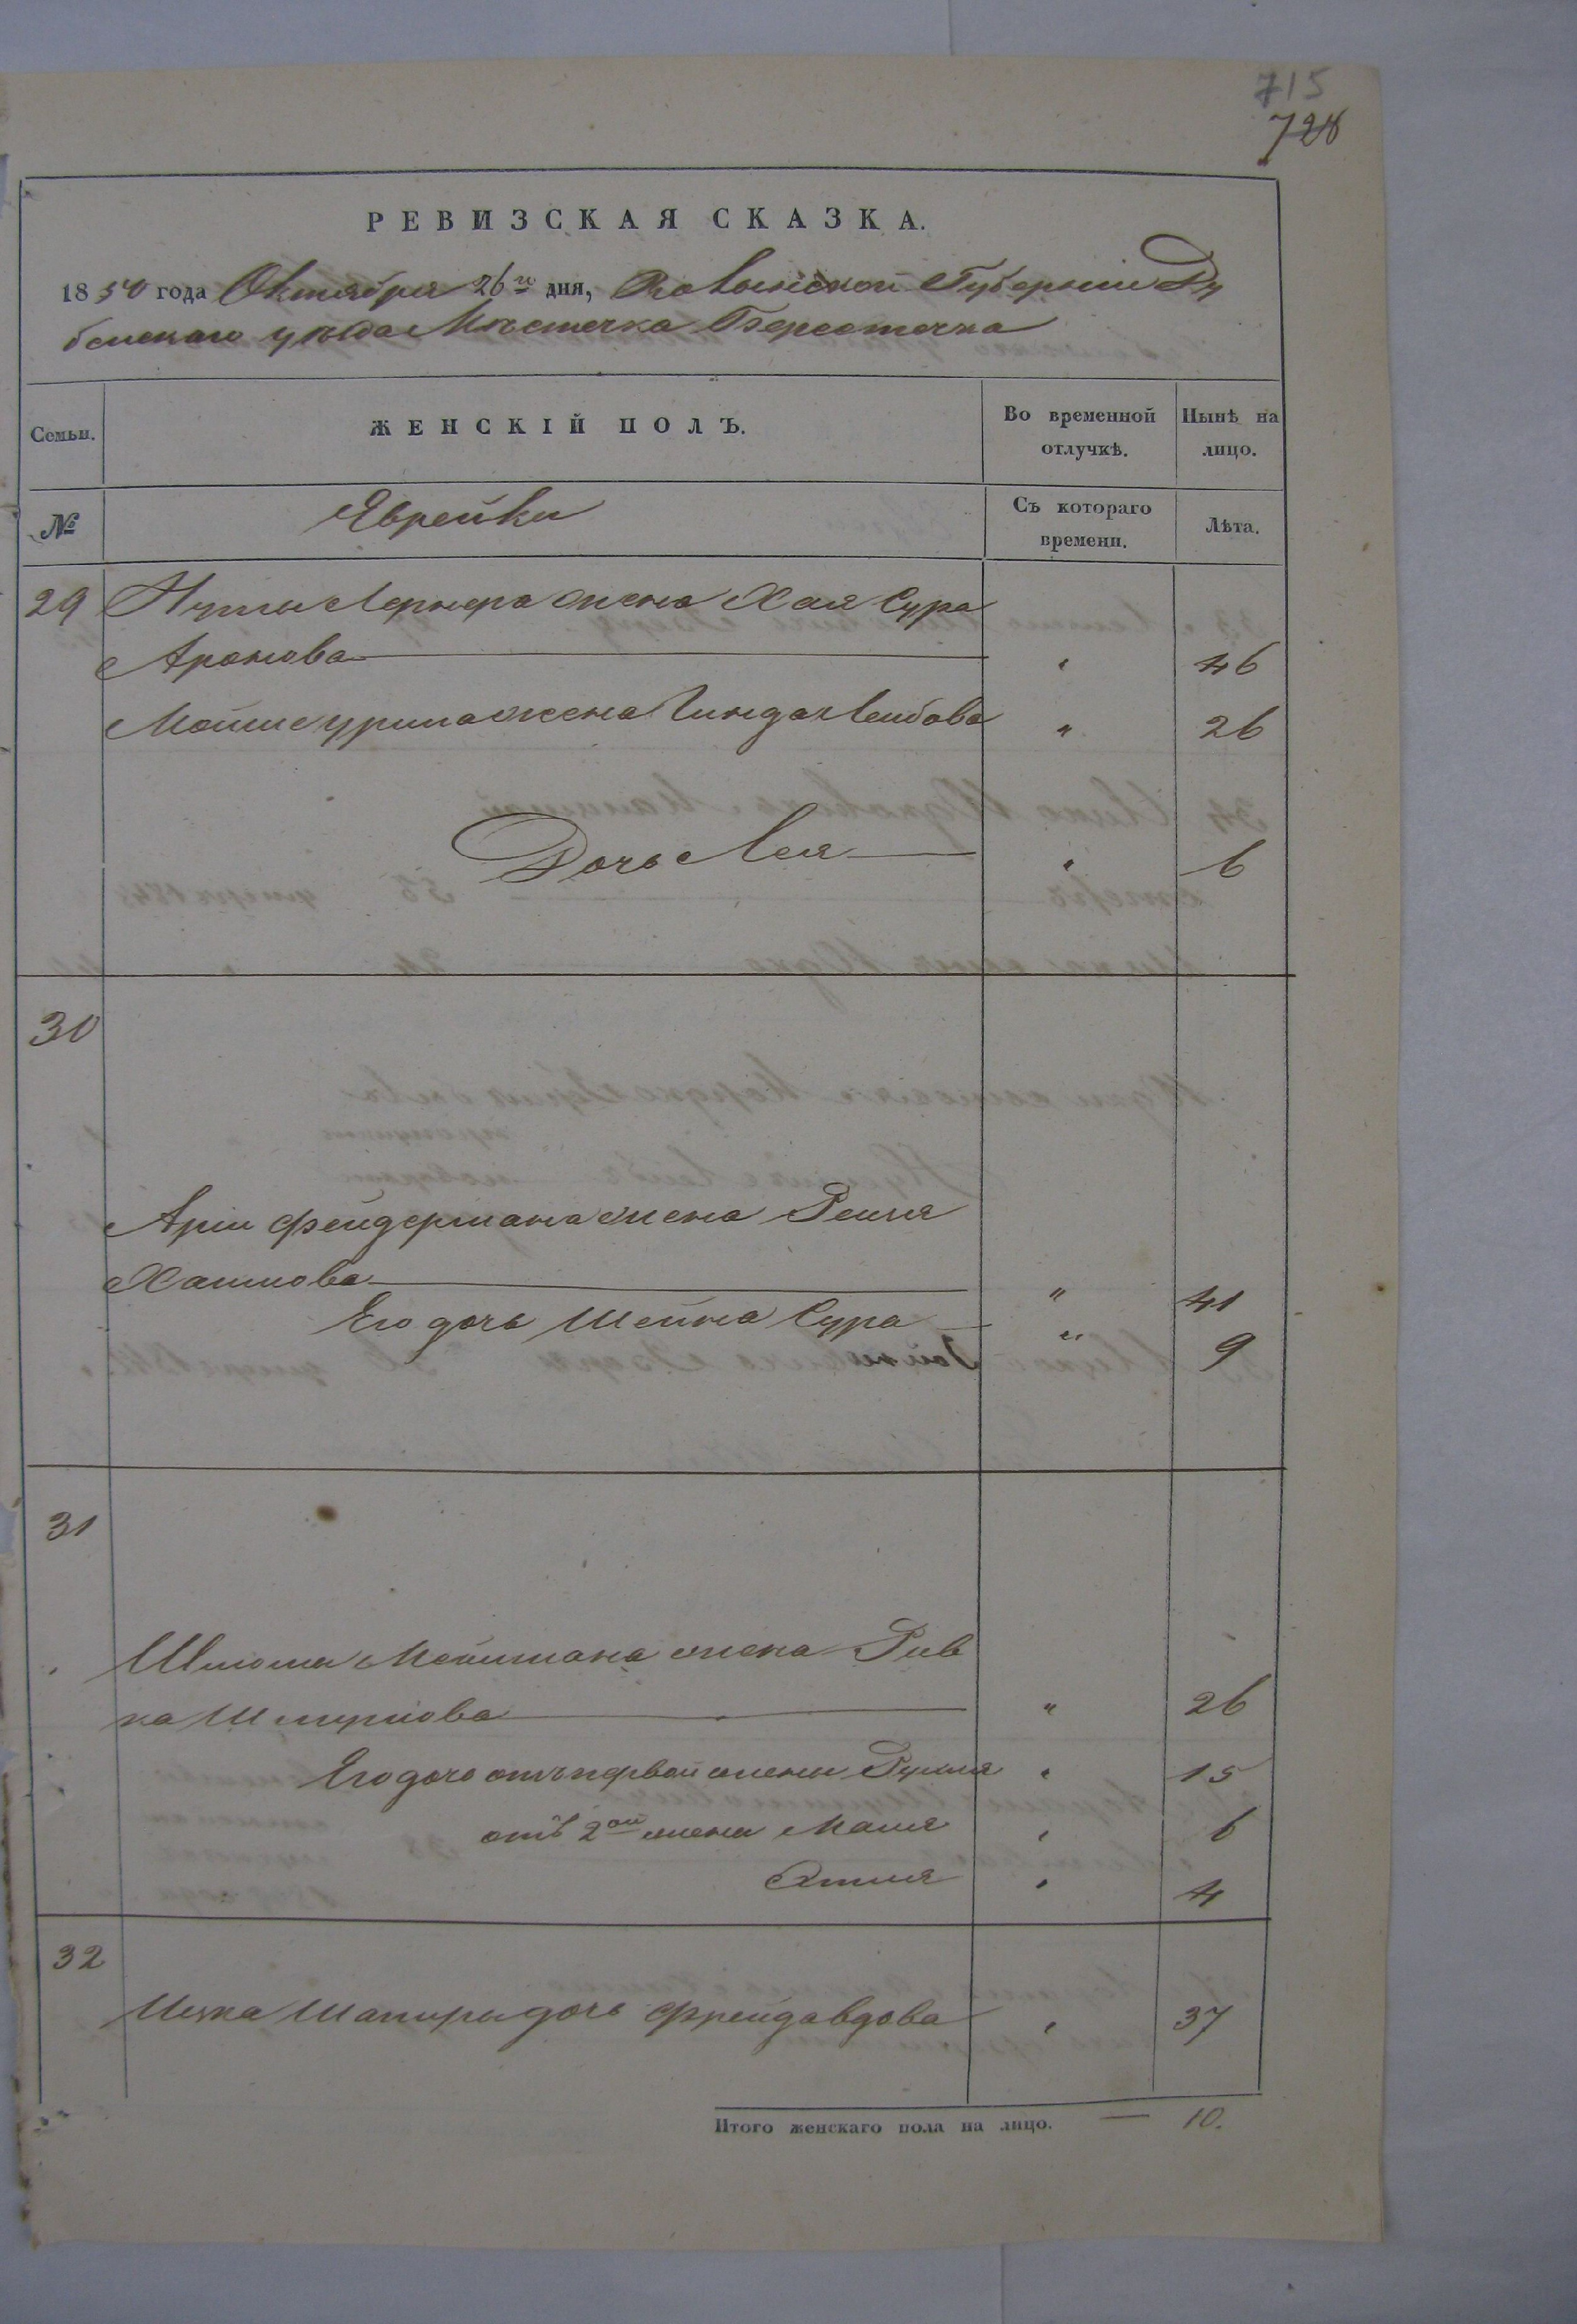 715
728
РЕВИЗСКАЯ СКАЗКА.
1850 года Октября 26го дня, Волынской Губерніи Ду
бенскаго уѣзда Мѣстечка Берестечка
Семьи.
ЖЕНСКІЙ ПОЛЪ.
Во временной отлучкѣ.
Нынѣ на лицо.
№
Еврейки
Съ котораго времени.
Лѣта.
29 Нуты Лернера жена Хая Сура
Аронова " 46
Мойше жена Гинда Лейбова " 26
Дочь Лея " 6
30
Арiи Фейдермана жена Рейзя
Хаимова " 41
Его дочь Шейна Сура " 9
31
Шліомы жена Рив
ка " 26
Его дочь отъ первой жены " 15
отъ 2ой жены Маля " 6
" 4
32
Ицка Шапиры дочь Фрейда вдова " 37
Итого женскаго пола на лицо. — 10.